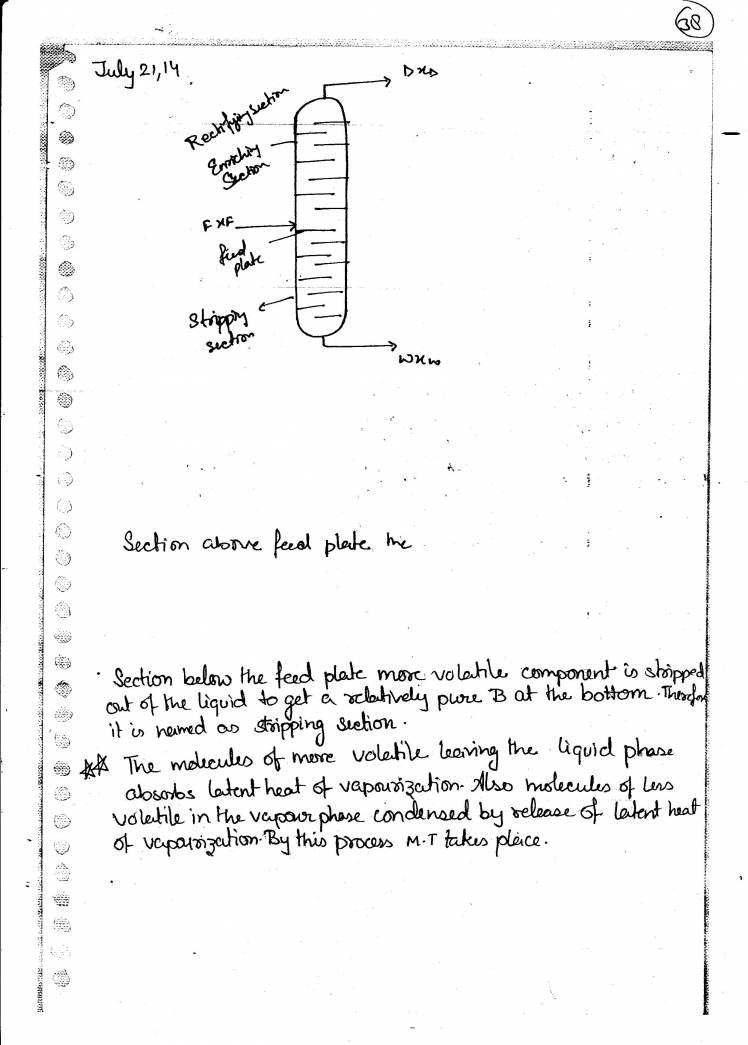 38
July 21,14.
D xD
Rectifying section
Enriching
Section
F xF
feed
plate
Stripping
section
W xw
Section above feed plate the
· Section below the feed plate more volatile component is stripped
out of the liquid to get a relatively pure B at the bottom. Therefore
it is named as stripping section.
The molecules of more volatile leaving the liquid phase
absorbs latent heat of vapourization. Also molecules of less
volatile in the vapour phase condensed by release of latent heat
of vapourization. By this process M.T takes place.